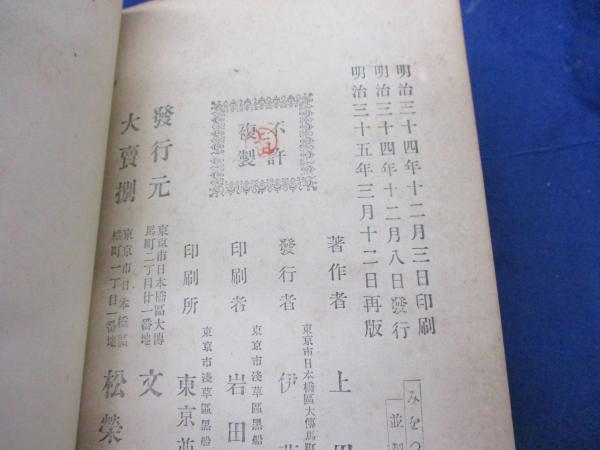 明治三十四年十二月三日印刷
明治三十四年十二月八日發行
明治三十五年三月十二日再版
みをつ
並製
不許
複製
著作者
上田
東京市日本橋區大傳馬町
發行者
伊
東京市淺草區黒船
印刷者
岩田
東京市淺草區黒船
印刷所
東京並
發行元
東京市日本橋區大傳
馬町二丁目廿一番地
文
大賣捌
東京市日本橋區
橘町一丁目一番地
松榮